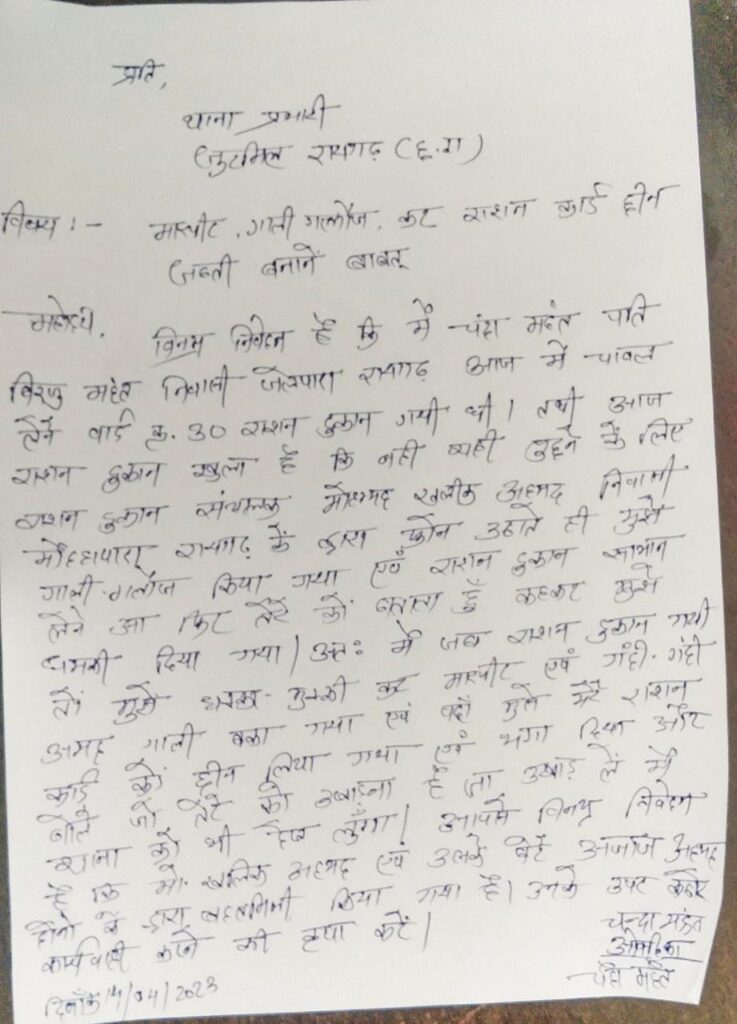 प्रति,
थाना प्रभारी
जुटमिल रायगढ़ (छ.ग)
विषय :- मारपीट, गाली गलौज, कर राशन कार्ड छीन
जप्ती बनाने बाबत्
महोदय,
विनम्र निवेदन है कि मैं चंदा महंत पति
विरजु महंत निवासी जेलपारा रायगढ़ आज में चावल
लेने वार्ड क्र. 30 राशन दुकान गयी थी। तभी आज
राशन दुकान खुला है कि नही यही पुछने के लिए
राशन दुकान संचालक मोहम्मद खलीक अहमद निवासी
मौदहापारा रायगढ़ के द्वारा फोन उठाते ही मुझे
गाली-गलौज किया गया एवं राशन दुकान सामान
लेने आ फिर तेरे को बताता हूँ कहकर मुझे
धमकी दिया गया। अतः मैं जब राशन दुकान गयी
तो मुझे धक्का-मुक्की कर मारपीट एवं गंदी-गंदी
अभद्र गाली बका गया एवं वहाँ मुझे मेरे राशन
कार्ड को छीन लिया गया एवं भगा दिया और
बोले जो तेरे को उखाड़ना है जा उखाड़ ले मैं
थाना को भी देख लूँगा। आपसे विनम्र निवेदन
है कि मो. खलिक अहमद एवं उसके बेटे अजाज अहमद
दोनो के द्वारा बदतमिजी किया गया है। उनके उपर कठोर
कार्यवाही करने की कृपा करें।
चन्दा महंत
दिनाँक 14/04/2023
चंदा महंत